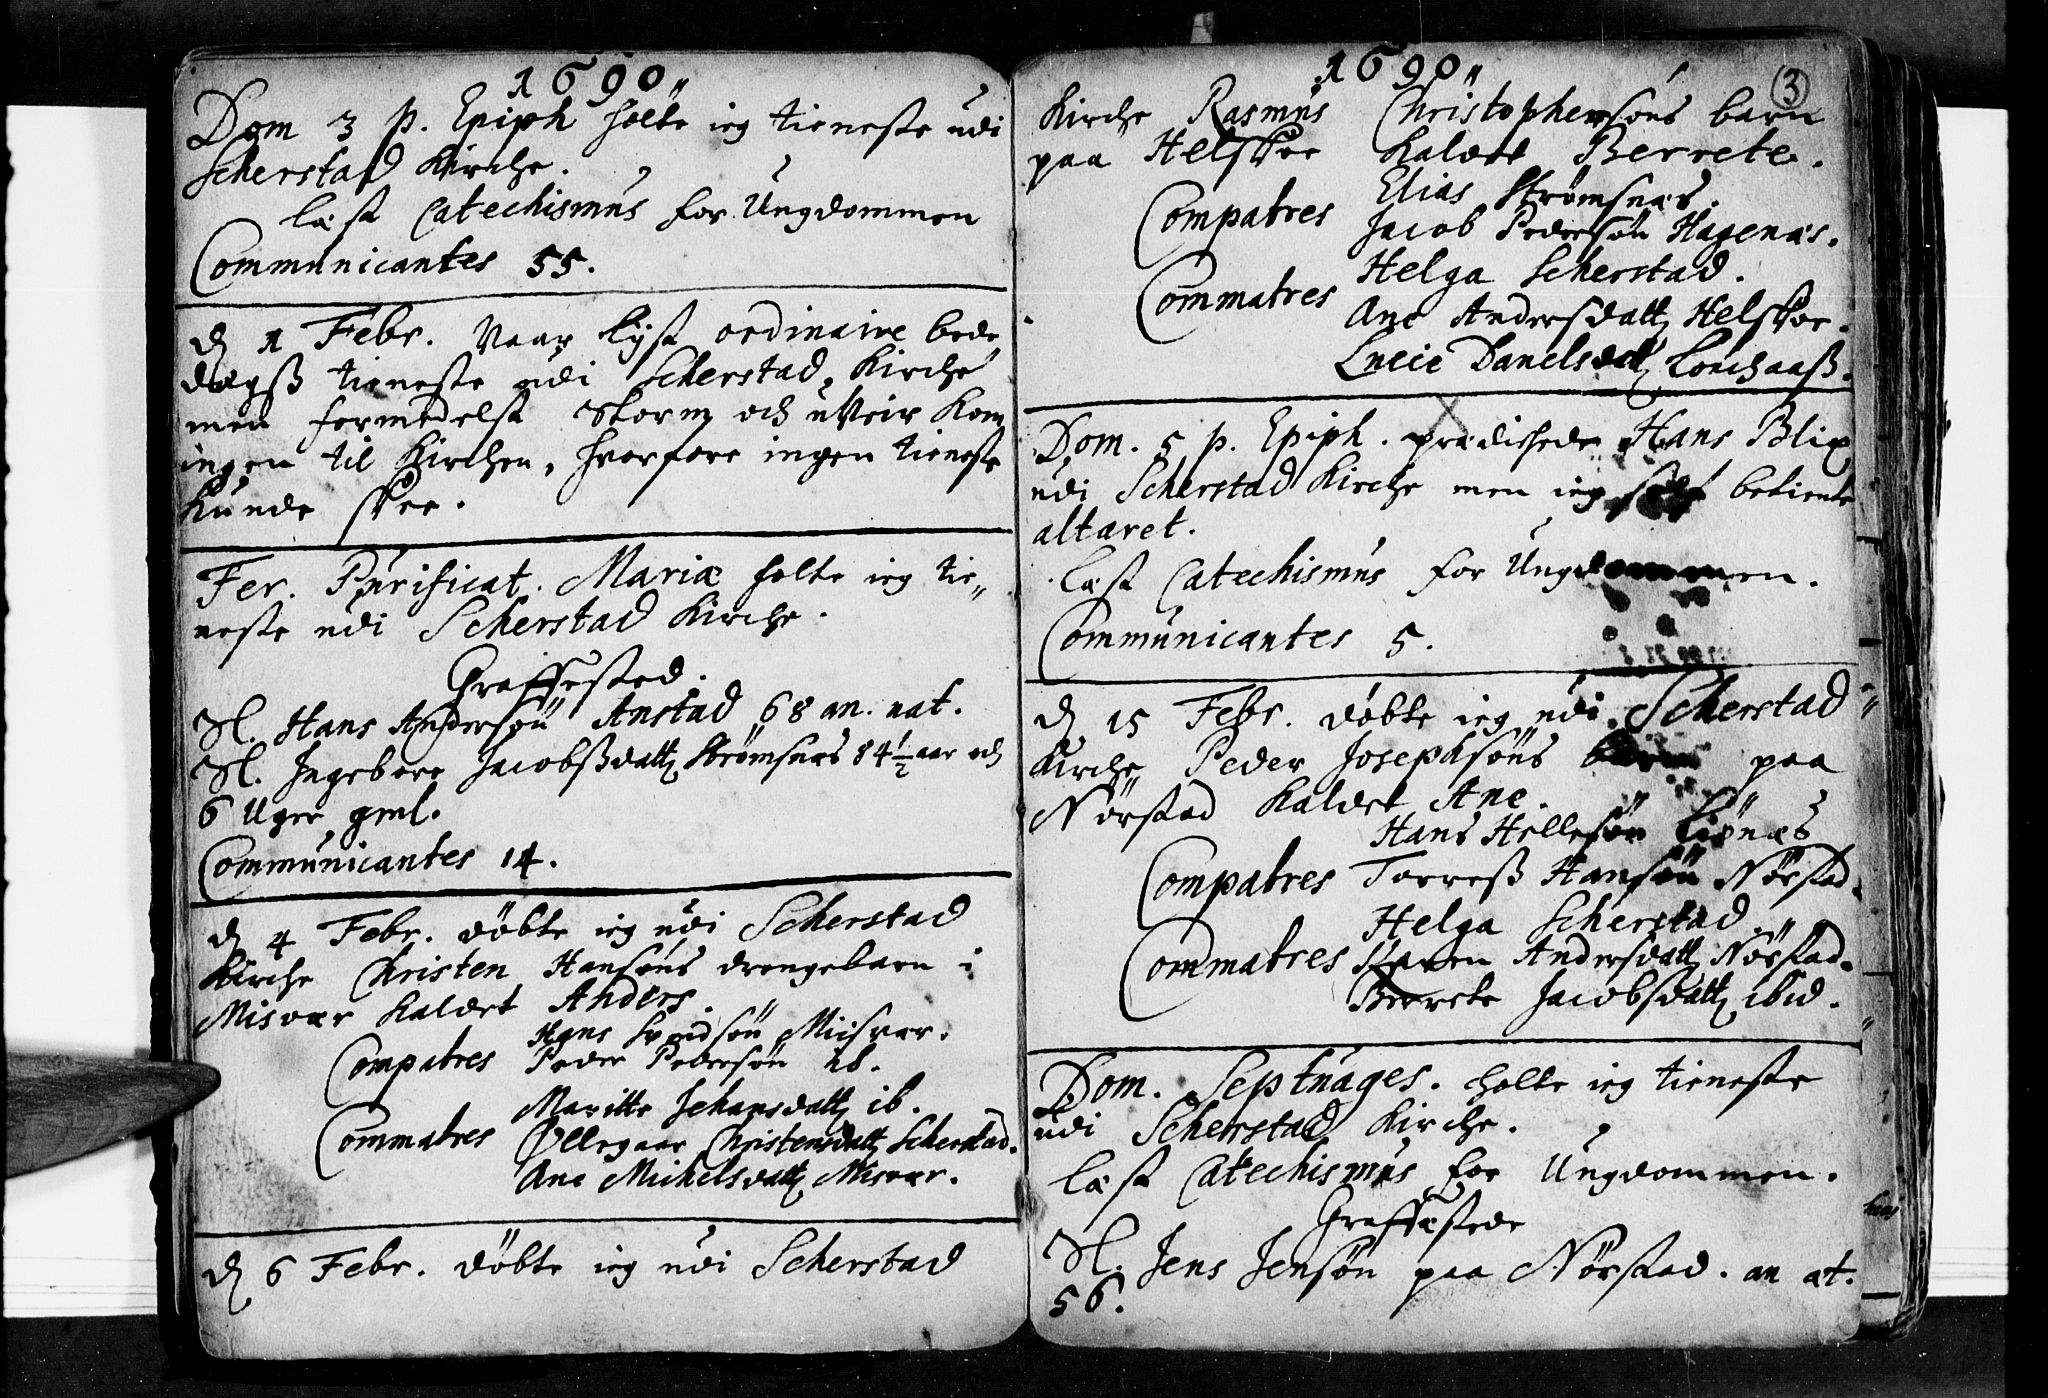 1690
Dom 3 p. Epiph holte ieg tieneste udi
Scherstad Kirche.
læst Catechismus for Ungdommen
Communicantes 55.
d 1 Febr. Vaar lyst ordinaire bede
dagß tieneste udi Scherstad Kirche
men formedelst Storm och uVeir kom
ingen til Kirchen, hvorfore ingen tieneste
kunde skee.
Fer. Purificat. Mariæ holte ieg tie„
neste udi Scherstad Kirche.
Graffested.
Sl. Hans Andersøn Anstad 68 an. nat.
Sl. Ingebore Jacobßdatt Strømsnæs 84½ aar och
6 Uger gml.
Communicantes 14.
d 4 Febr. døbte ieg udi Scherstad
Kirche Christen Hansøns drengebarn i
Misvær kaldet Anders.
Hans Svendsøn Misvær.
Compatres Peder Pedersøn ib.
Maritte Johansdatt ib.
Commatres Øllegaar Christensdatt Scherstad.
Ane Michelsdatt Misvær.
d 6 Febr. døbte ieg udi Scherstad
1690
3
Kirche Rasmus Christophersøns barn
paa Helskoe kaldet Berrete.
Elias Strømsnæs.
Compatres Jacob Pedersøn Hagenæs.
Helga Scherstad.
Commatres
Ane Andersdatt Helskoe.
Lucie Danelsdatt
Dom. 5 p. Epiph. prædichede Hans Blix
udi Scherstad Kirche men ieg self betiente
altaret.
læst Catechismus for Ungdommen.
Communicantes 5.
d 15 Febr. døbte ieg udi Scherstad
Kirche Peder Josephsøns barn paa
Nørstad kaldet Ane.
Hans Hellesøn
Compatres Torreß Hansøn Nørstad.
Helga Scherstad.
Commatres Karen Andersdatt Nørstad.
Jacobsdatt ibid.
Dom. Septuages. holte ieg tieneste
udi Scherstad Kirche.
læst Catechismus for Ungdommen.
Graffæstede
Sl. Jens Jensøn paa Nørstad. an æt.
56.